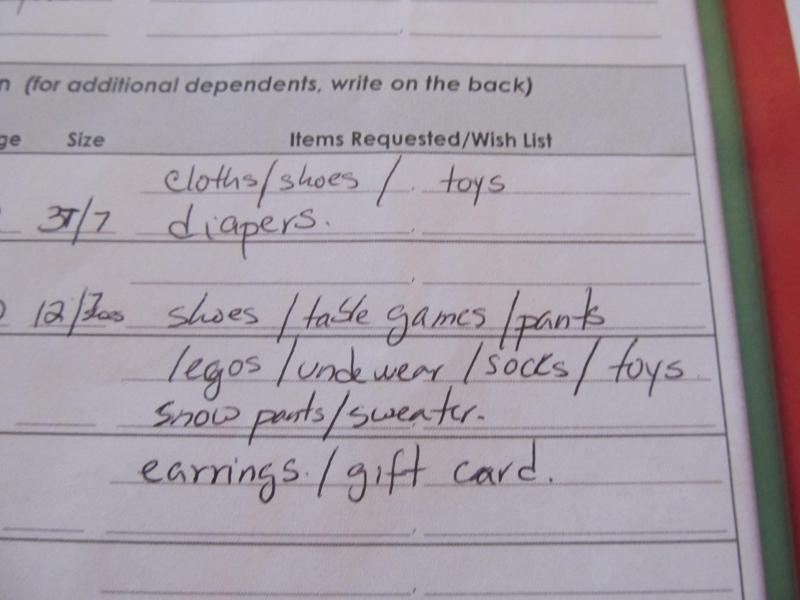 n (for additional dependents, write on the back)
ge Size Items Requested/Wish List
cloths/shoes / toys
3T/7 diapers.
12/ shoes /table games /pants
legos /undewear /socks/ toys
snow pants/sweater.
earrings. /gift card.